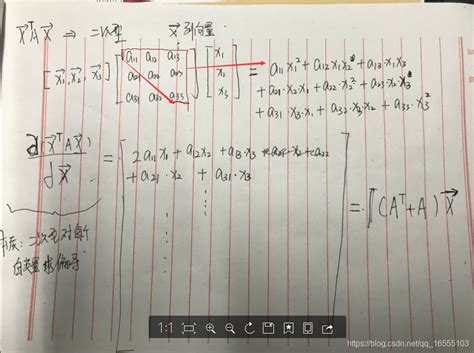 X⃗ᵀAX⃗ ⇒ 二次型 X⃗ 列向量
[x₁, x₂, x₃] [a₁₁ a₁₂ a₁₃ a₂₁ a₂₂ a₂₃ a₃₁ a₃₂ a₃₃] [x₁ x₂ x₃] = a₁₁x₁² + a₁₂x₁x₂ + a₁₃·x₁x₃
+ a₂₁·x₂x₁ + a₂₂·x₂² + a₂₃·x₂x₃
+ a₃₁·x₃·x₁ + a₃₂·x₃x₂ + a₃₃·x₃²
d(X⃗ᵀAX⃗)/dX⃗ = [2a₁₁x₁ + a₁₂x₂ + a₁₃·x₃
+ a₂₁·x₂ + a₃₁·x₃
⋮ ⋮] = (Aᵀ+A)X⃗
本质: 二次型对每个
自变量求偏导
1:1
https://blog.csdn.net/qq_16555103